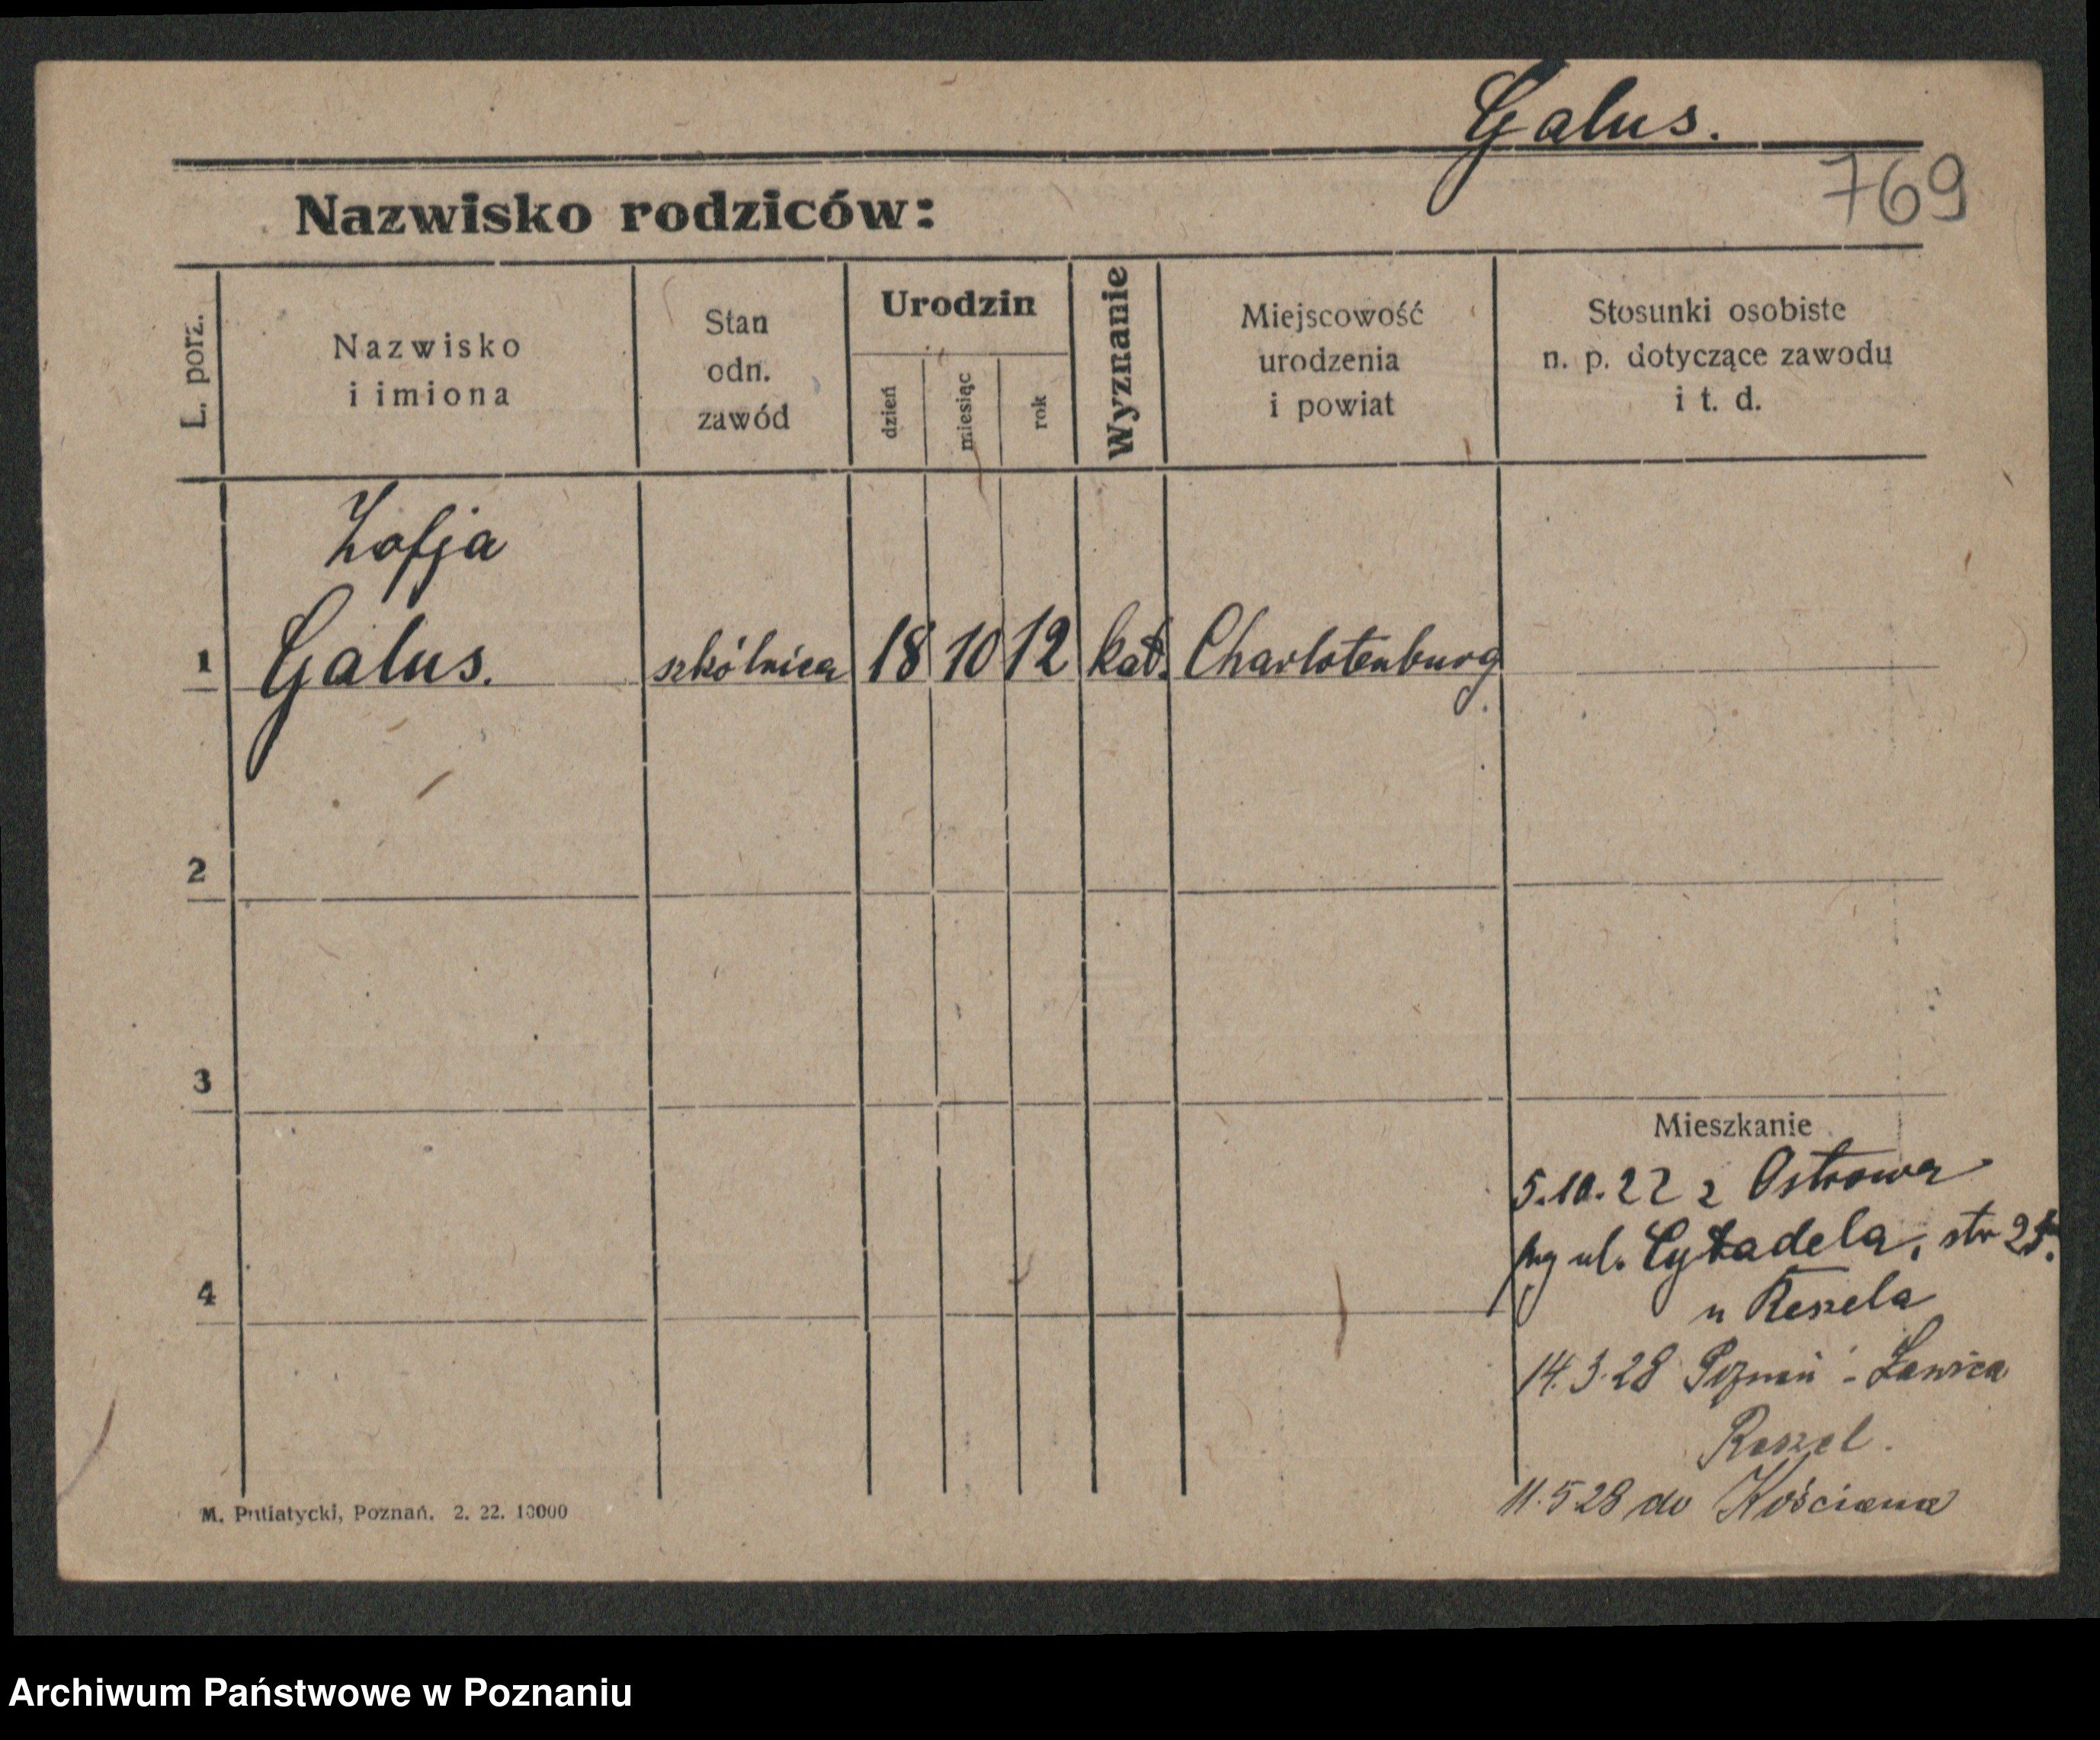 Galus.
769
Nazwisko rodziców:
L. porz.
Nazwisko
i imiona
Stan
odn.
zawód
Urodzin
dzień
miesiąc
rok
Wyznanie
Miejscowość
urodzenia
i powiat
Stosunki osobiste
n. p. dotyczące zawodu
i t. d.
Zofja
1 Galus. szkólnica 18 10 12 kat. Charlotenburg
2
3
Mieszkanie
5.10.22 z Ostrowa
ul. Cytadela, str
4
u Reszela
14.3.28 Poznań - Ławica
Reszel.
11.5.28 do Kościana
M. Putiatycki, Poznań. 2. 22. 10000
Archiwum Państwowe w Poznaniu